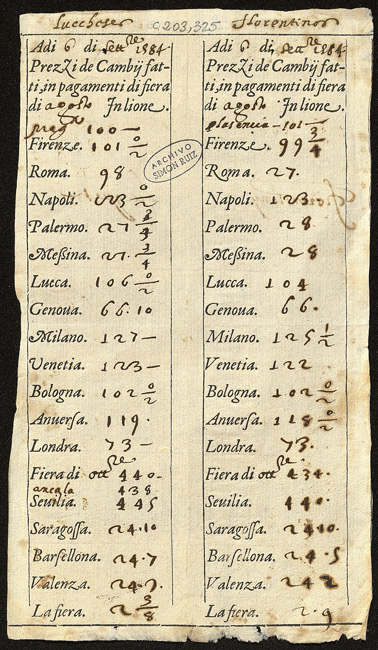 Luccheses
c 203,325
Florentinos
Adi 6 di settre 1584
Prezzi de Cambij fat-
ti, in pagamenti di fiera
di agosto In lione.
100 —
Firenze. 101 0/2
Roma. 98
Napoli. 123 0/2
Palermo. 27 3/4
Meßina. 27. 3/4
Lucca. 106 0/2
Genoua. 66.10
Milano. 127 —
Venetia. 123 —
Bologna. 102 0/2
Anuersa. 119.
Londra. 73 —
Fiera di ottre 440.
438
Seuilia. 445
Saragossa. 24.10
Barsellona. 24.7
Valenza. 24.7.
La fiera. 2 3/8
ARCHIVO
SIMON RUIZ
Adi 6 di settre 1584
Prezzi de Cambij fat-
ti, in pagamenti di fiera
di agosto In lione.
plasencia — 101 —
Firenze. 99 3/4
Roma. 27.
Napoli. 123.
Palermo. 28
Meßina. 28
Lucca. 104
Genoua. 66.
Milano. 125 1/2
Venetia. 122
Bologna. 102 0/2
Anuersa. 118 0/2
Londra. 73.
Fiera di ottre 434.
Seuilia. 440.
Saragossa. 24.10.
Barsellona. 24.5
Valenza. 242
La fiera. 2.9